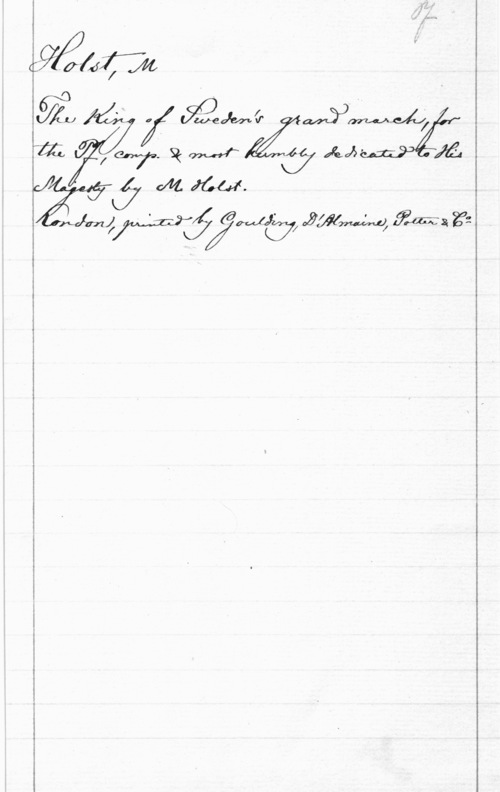 Pf
Holst, M
The King of Sweden's grand march, for
the Pf, comp. & most humbly dedicated to His
Majesty by M Holst.
London, printed by Goulding, D'Almaine, Potter & Co